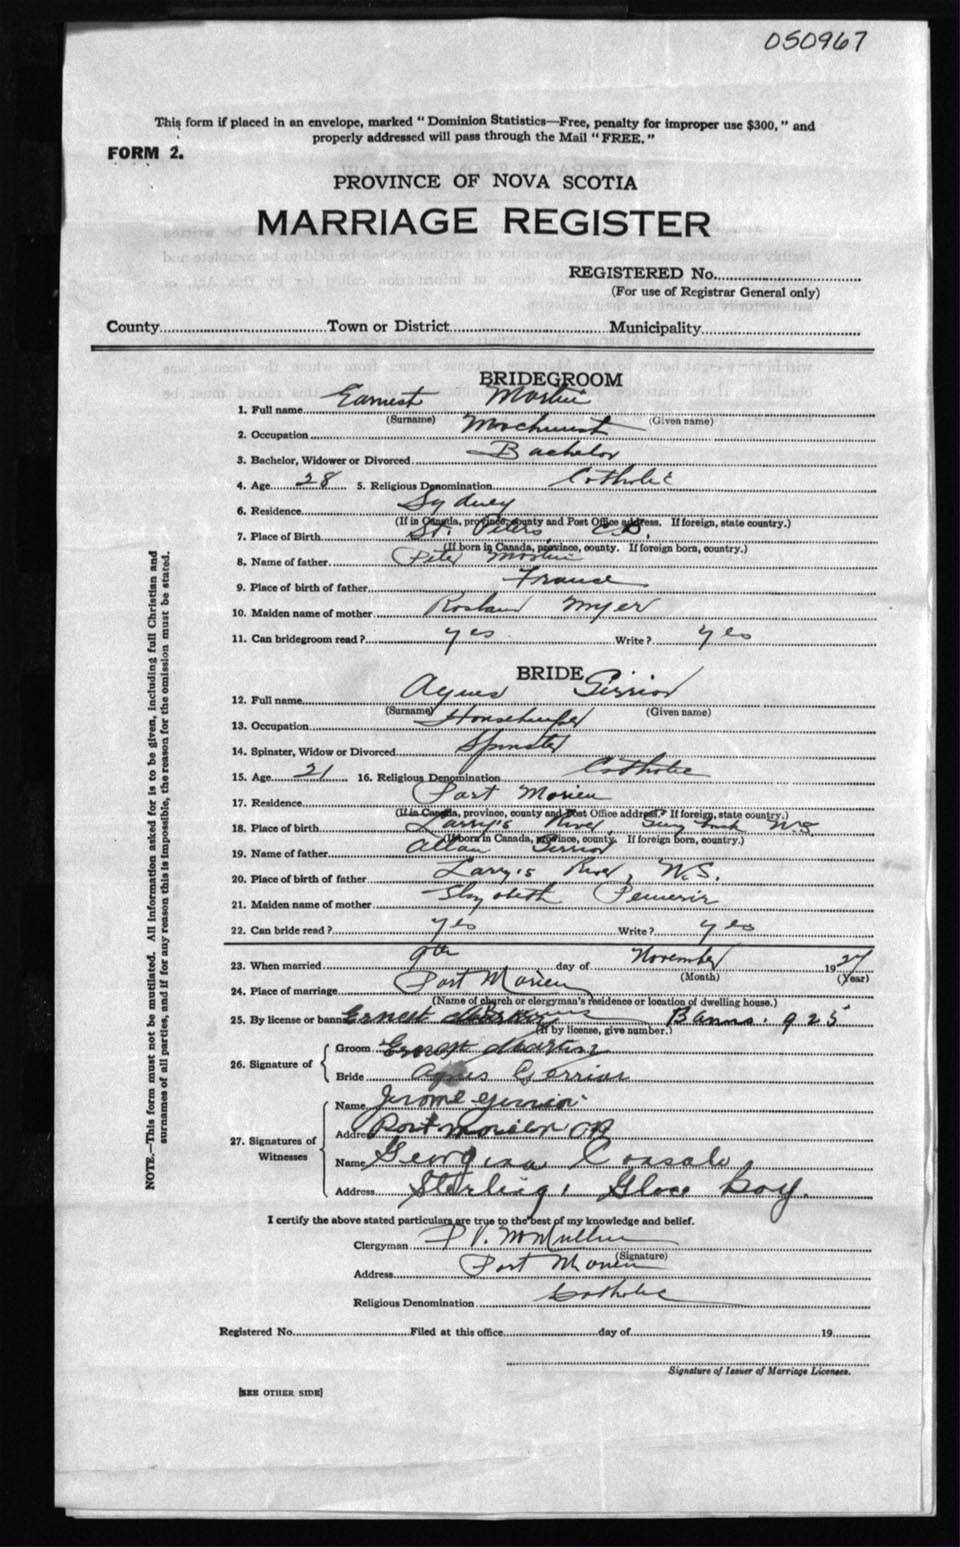 050967
This form if placed in an envelope, marked "Dominion Statistics—Free, penalty for improper use $300," and
properly addressed will pass through the Mail "FREE."
FORM 2.
PROVINCE OF NOVA SCOTIA
MARRIAGE REGISTER
REGISTERED No.
(For use of Registrar General only)
County Town or District Municipality
BRIDEGROOM
1. Full name Earnest Martin
(Surname) (Given name)
2. Occupation
3. Bachelor, Widower or Divorced Bachelor
4. Age 28 5. Religious Denomination Catholic
6. Residence Sydney
(If in Canada, province, county and Post Office address. If foreign, state country.)
7. Place of Birth St. Peters C.B.
(If born in Canada, province, county. If foreign born, country.)
8. Name of father Peter Martin
9. Place of birth of father France
10. Maiden name of mother Myer
11. Can bridegroom read? yes Write? yes
BRIDE
12. Full name Agnes Girrior
(Surname) (Given name)
13. Occupation Housekeeper
14. Spinster, Widow or Divorced Spinster
15. Age 21 16. Religious Denomination Catholic
17. Residence Port Morien
(If in Canada, province, county and Post Office address. If foreign, state country.)
18. Place of birth Larry's River, N.S.
(If born in Canada, province, county. If foreign born, country.)
19. Name of father Allan Girrior
20. Place of birth of father Larry's River, N.S.
21. Maiden name of mother
22. Can bride read? yes Write? yes
23. When married 9th day of November 1927
(Month) (Year)
24. Place of marriage Port Morien
(Name of church or clergyman's residence or location of dwelling house.)
25. By license or banns Ernest Banns. 925
(If by license, give number.)
26. Signature of Groom Ernest Martin
Bride Agnes Gerrior
27. Signatures of Witnesses Name Jerome Girrior
Address Port morien CB
Name Georgina
Address Sterling, Glace Bay.
I certify the above stated particulars are true to the best of my knowledge and belief.
Clergyman McMullin
(Signature)
Address Port Morien
Religious Denomination Catholic
Registered No. Filed at this office day of 19
Signature of Issuer of Marriage Licenses.
[SEE OTHER SIDE]
NOTE.—This form must not be mutilated. All information asked for is to be given, including full Christian and
surnames of all parties, and if for any reason this is impossible, the reason for the omission must be stated.